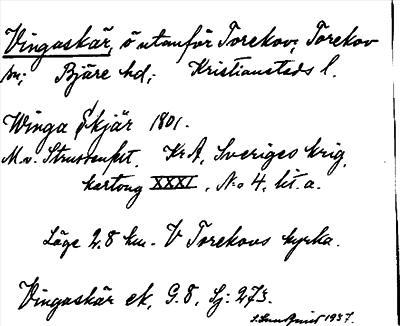 Vingaskär, ö utanför Torekov, Torekov
sn; Bjäre hd; Kristianstads l.
Winga Skjär 1801.
M.v. Strussenfelt. Kr A, Sveriges krig,
kartong XXXI, No 4, lit. a.
Läge 2,8 km. V Torekovs kyrka.
Vingaskär ek, G.8, Sj: 273.
1937.